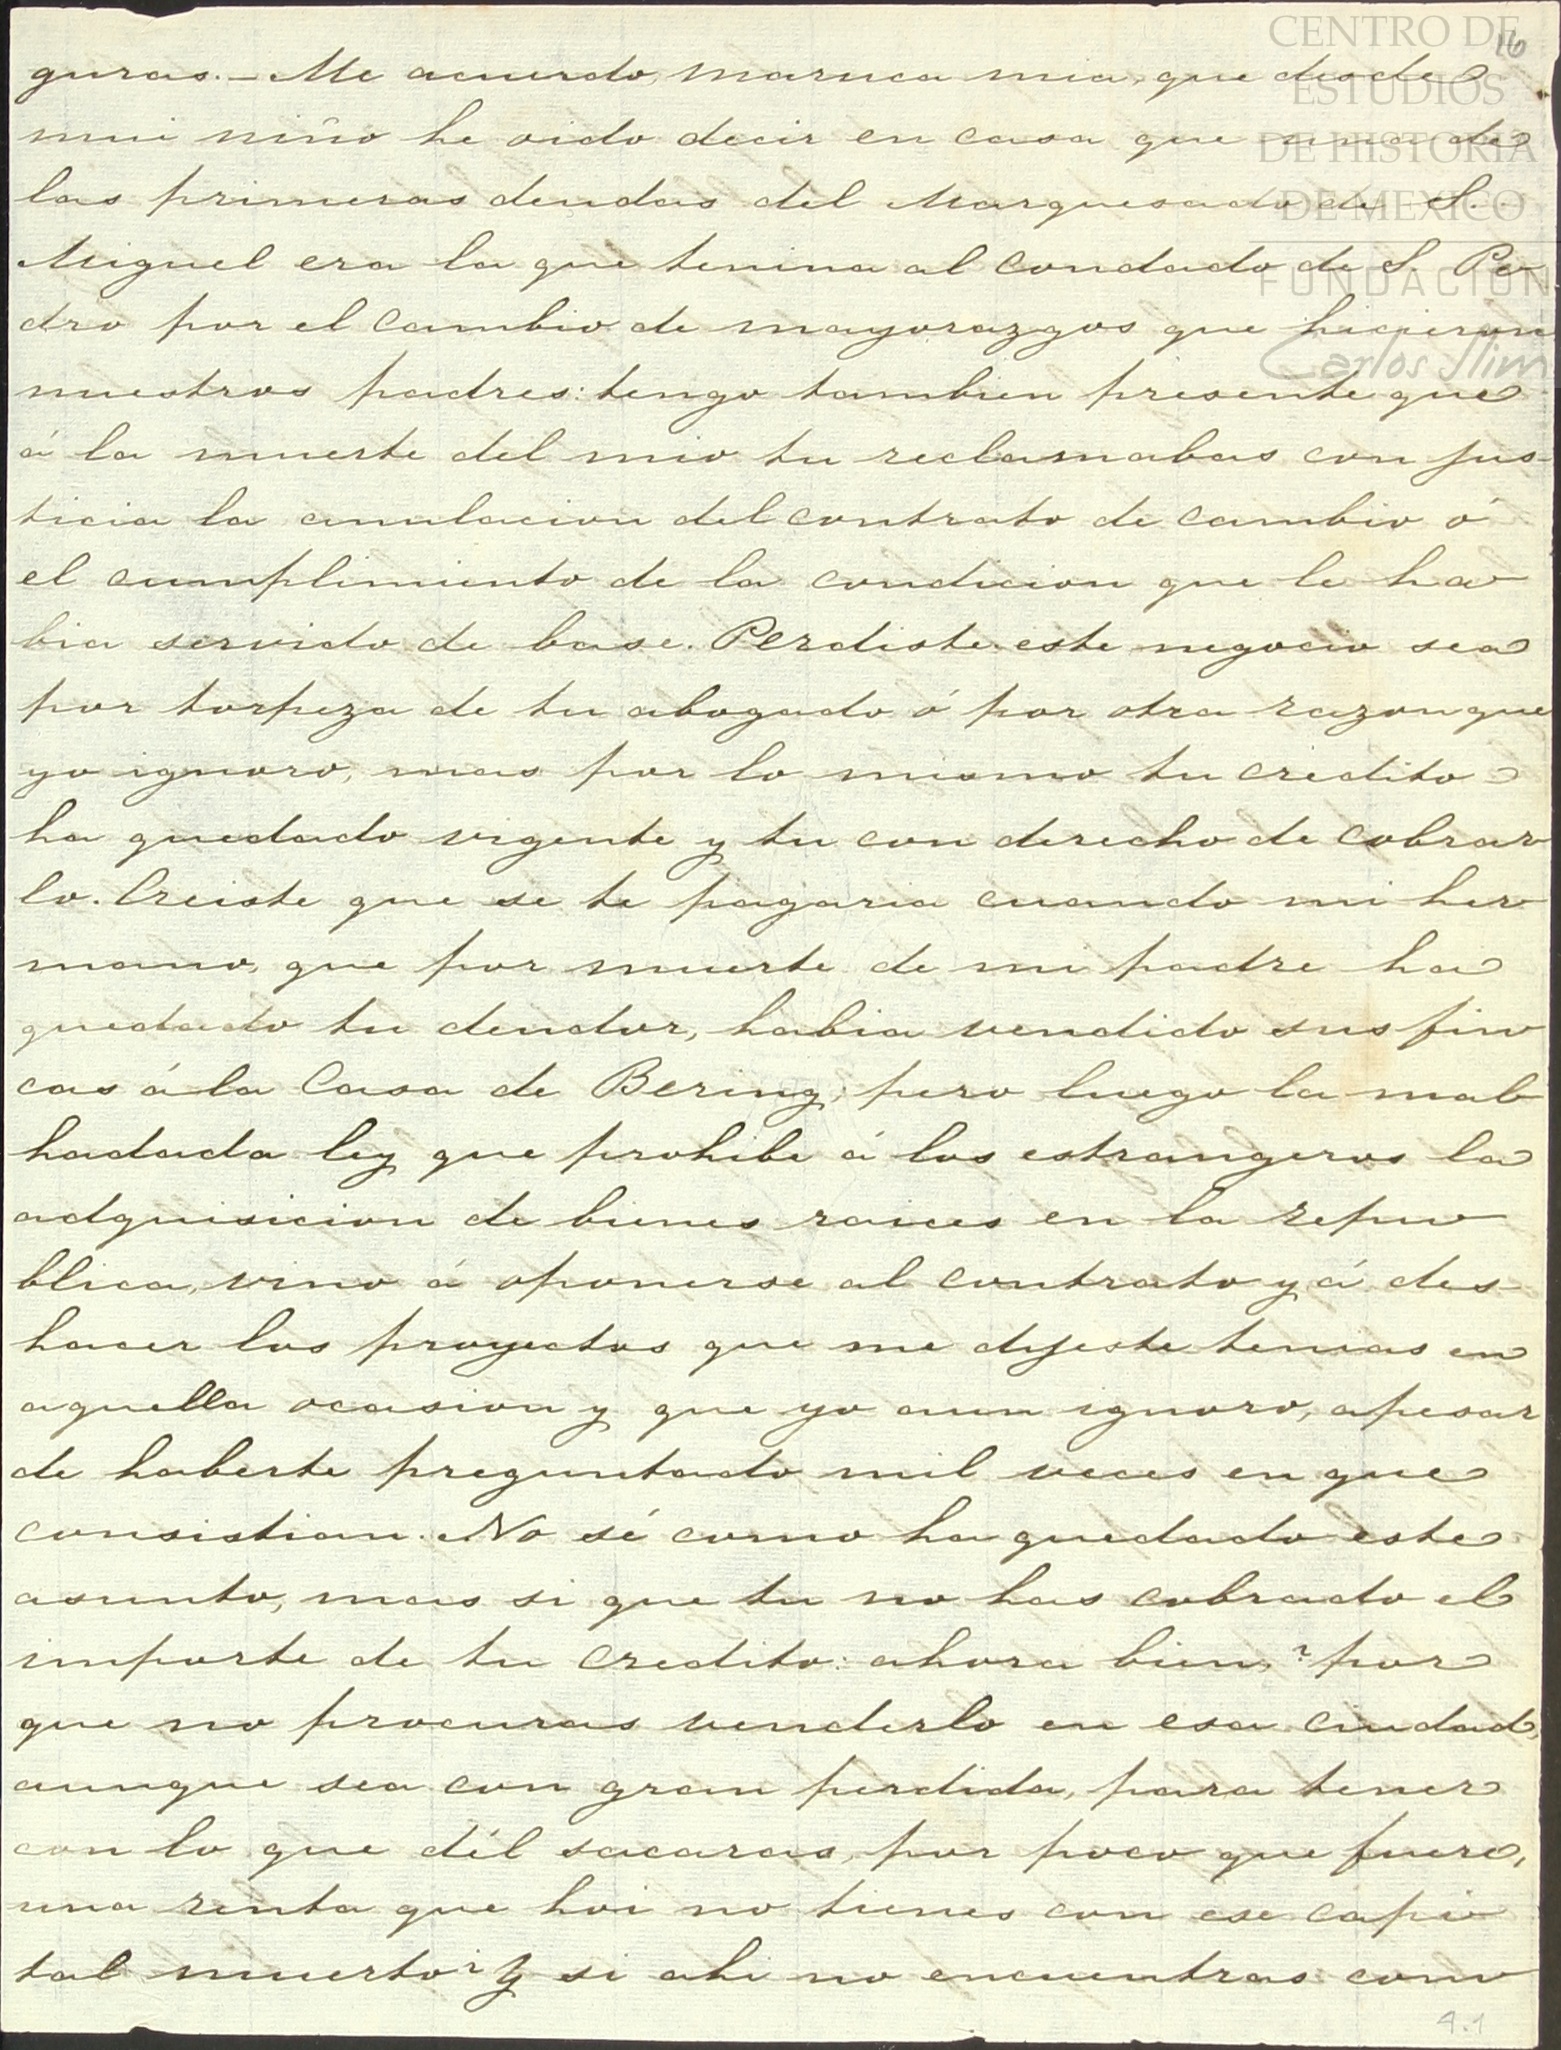 CENTRO DE
ESTUDIOS
DE HISTORIA
DE MEXICO
FUNDACION
Carlos Slim
16
guras. — Me acuerdo, maruca mia, que desde
mui niño he oido decir en casa que una de
las primeras deudas del Marquesado de S.
Miguel era la que tenina al condado de S. Pe
dro por el cambio de mayorazgos que hicieron
nuestros padres: tengo tambien presente que
á la muerte del mio tu reclamabas con jus-
ticia la anulacion del contrato de cambio ó
el cumplimiento de la condicion que le ha
bia servido de base. Perdiste este negocio sea
por torpeza de tu abogado ó por otra razon que
yo ignoro, mas por lo mismo tu credito
ha quedado vigente y tu con derecho de cobrar
lo. Creiste que se te pagaria cuando mi her
mano, que por muerte de mi padre ha
quedado tu deudor, habia vendido sus fin
cas á la Casa de Bering; pero luego la mal
hadada ley que prohibe á los estrangeros la
adquisicion de bienes raices en la repu
blica, vino á oponerse al contrato y á des-
hacer los proyectos que me dijeste tenias en
aquella ocasion y que yo aun ignoro, apesar
de haberte preguntado mil veces en que
consistian. No sé como ha quedado este
asunto, mas si que tu no has cobrado el
importe de tu credito: ahora bien, ? por
que no procuras venderlo en esa ciudad,
aunque sea con gran perdida, para tener
con lo que dél sacaras, por poco que fuere,
una renta que hoi no tienes con ese capi
tal muerto? Y si ahi no encuentras com
4.1